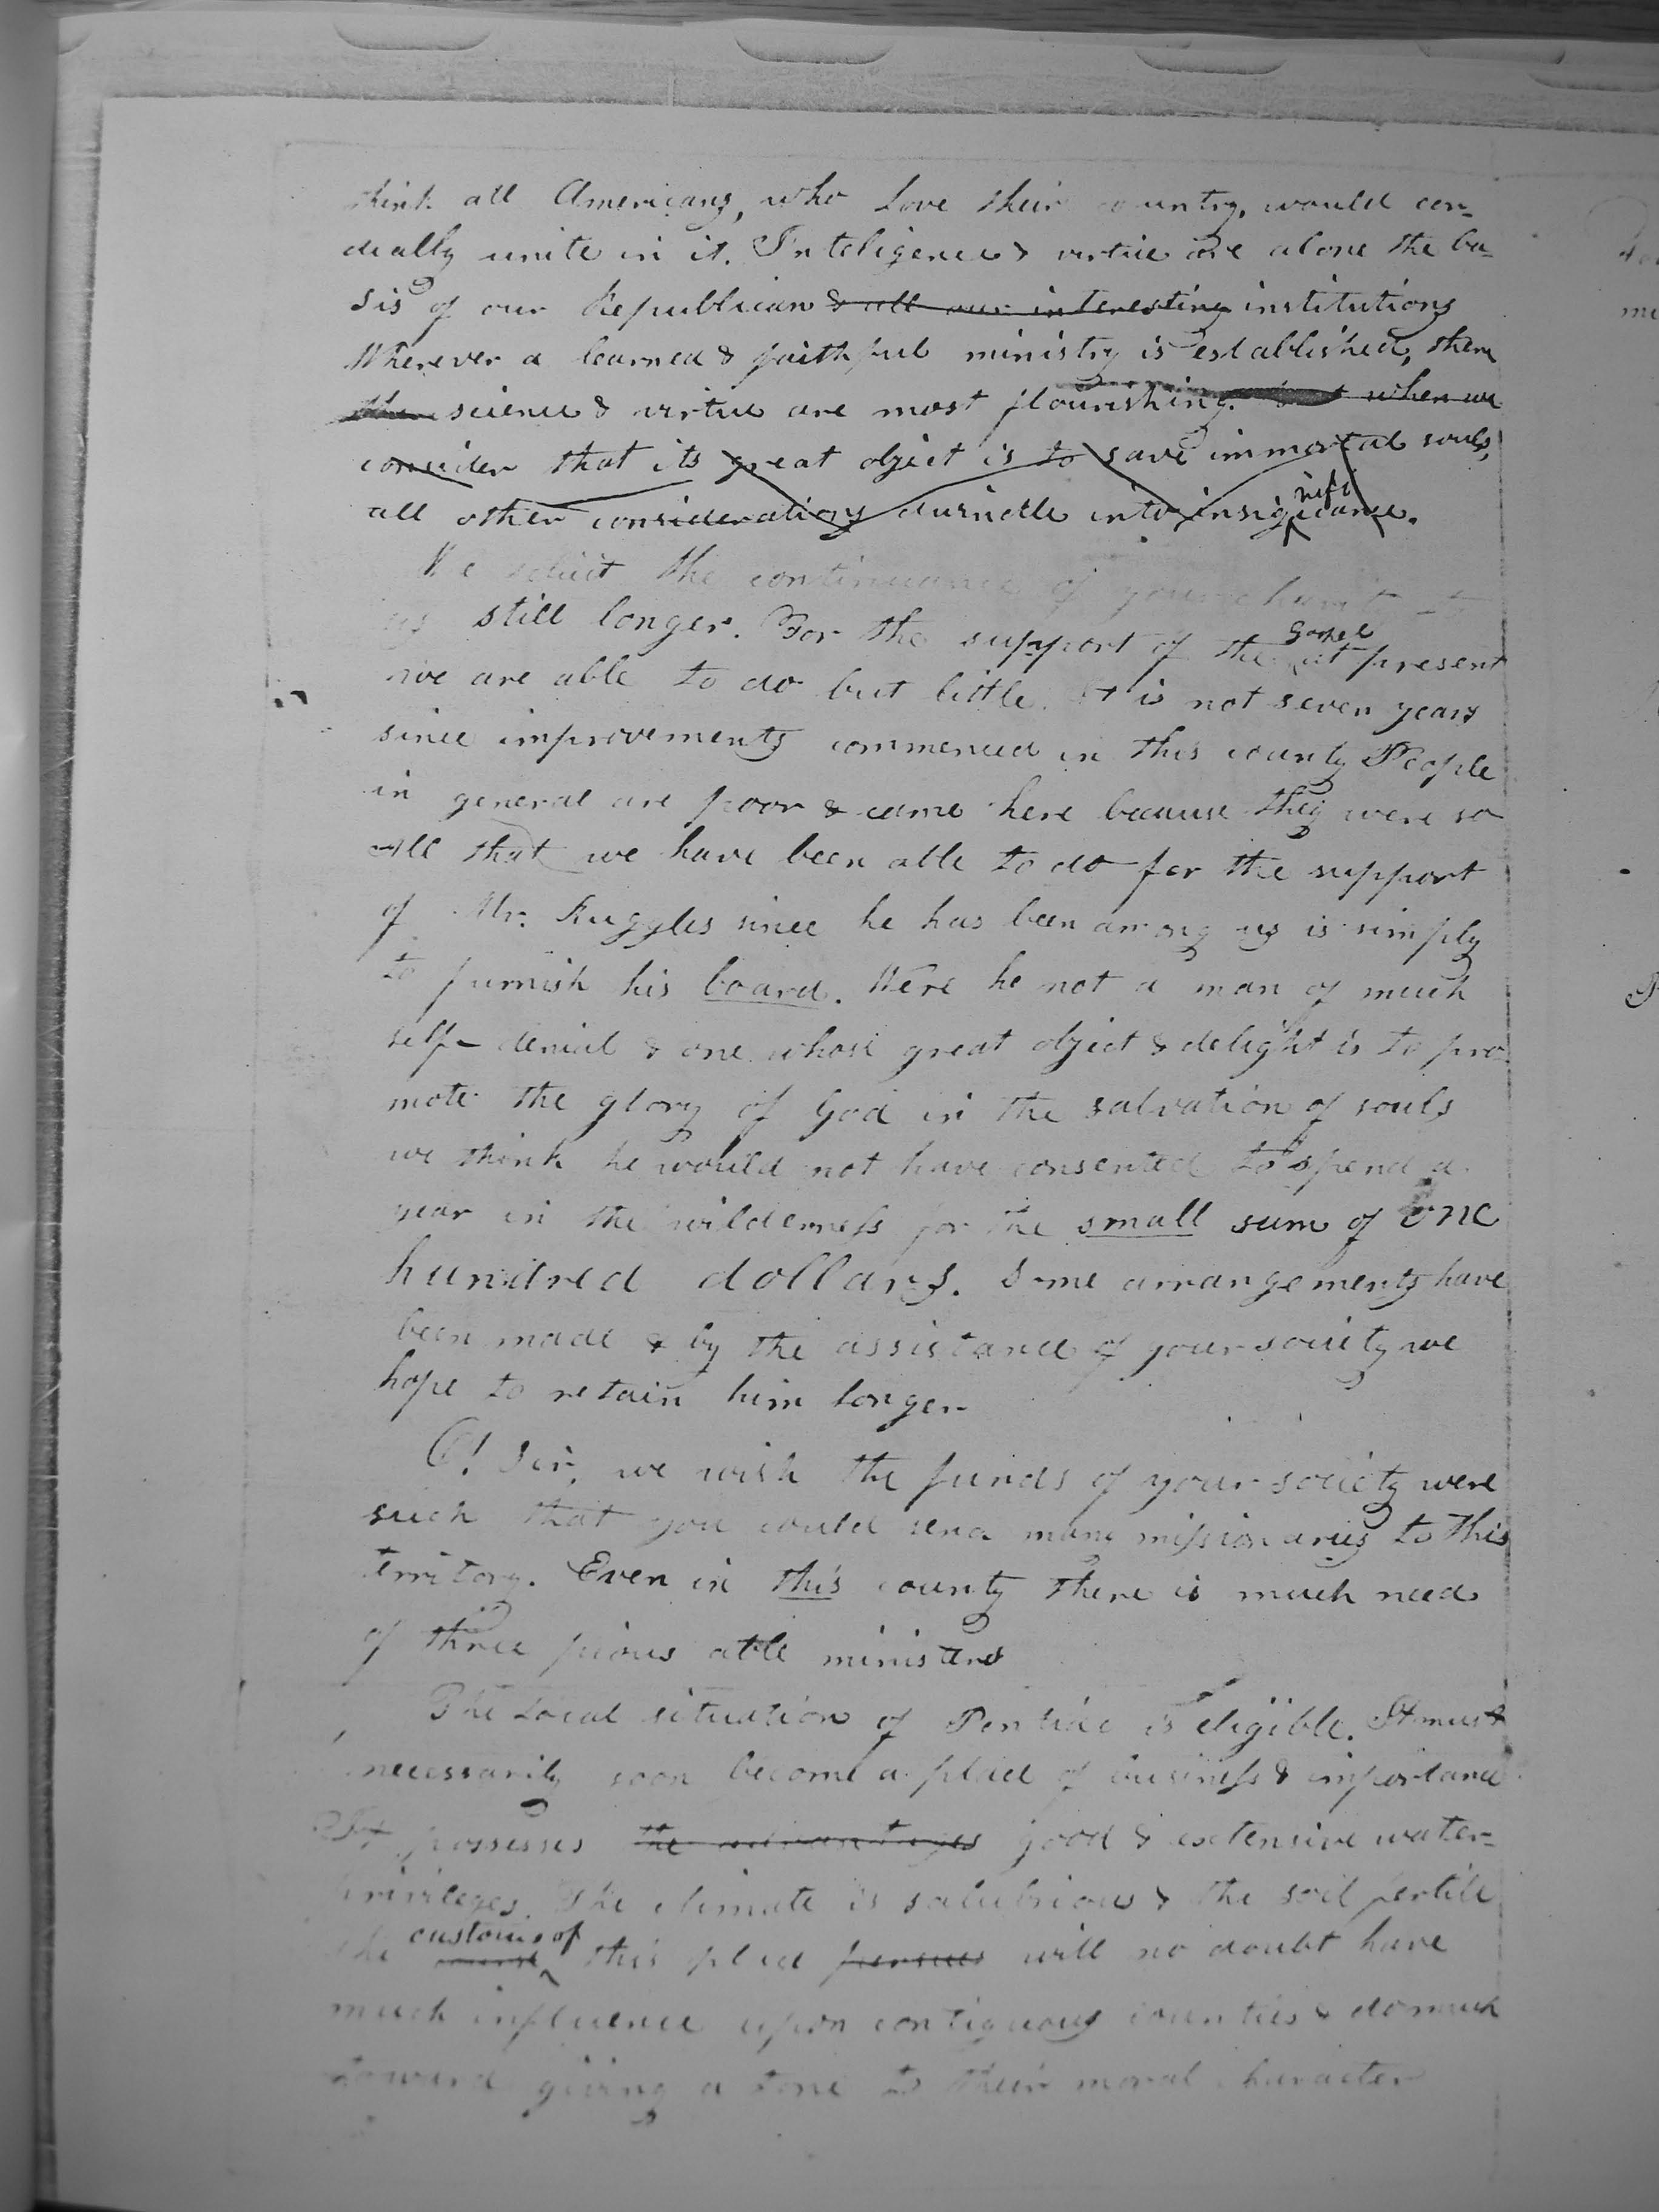 think all Americans, who love their country, would cor-
dially unite in it. Inteligence & virtue are alone the ba-
sis of our Republican & all our interesting institutions
Wherever a learned & faithful ministry is established, there
then science & virtue are most flourishing. but when we
consider that its great object is to save immortal souls,
all other considerations dwindle into insignificance.
We solicit the continuance of your charity to
us still longer. For the support of the Gospel at present
we are able to do but little. It is not seven years
since improvements commenced in this county People
in general are poor & came here because they were so
All that we have been able to do for the support
of Mr. Ruggles since he has been among us is simply
to furnish his board. Were he not a man of much
self-denial & one whose great object & delight is to pro
mote the glory of God in the salvation of souls
we think he would not have consented to spend a
year in the wilderness for the small sum of one
hundred dollars. Some arrangements have
been made & by the assistance of your society we
hope to retain him longer
O! Sir, we wish the funds of your society were
such that you could send many missionaries to this
territory. Even in this county there is much need
of three pious able ministers
The local situation of Pontiac is eligible. It must
necessarily soon become a place of business & importance
It possesses the advantages good & extensive water-
privileges. The climate is salubrious & the soil fertile
the course customs of this place pursues will no doubt have
much influence upon contiguous counties & do much
toward giving a tone to their moral character